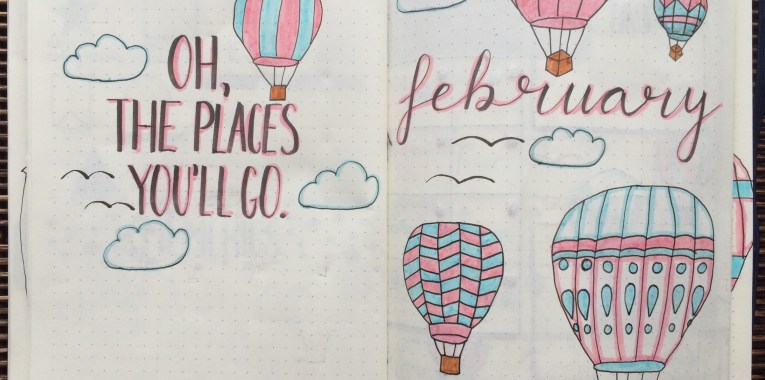 OH,
THE PLACES
YOU'LL GO.
february